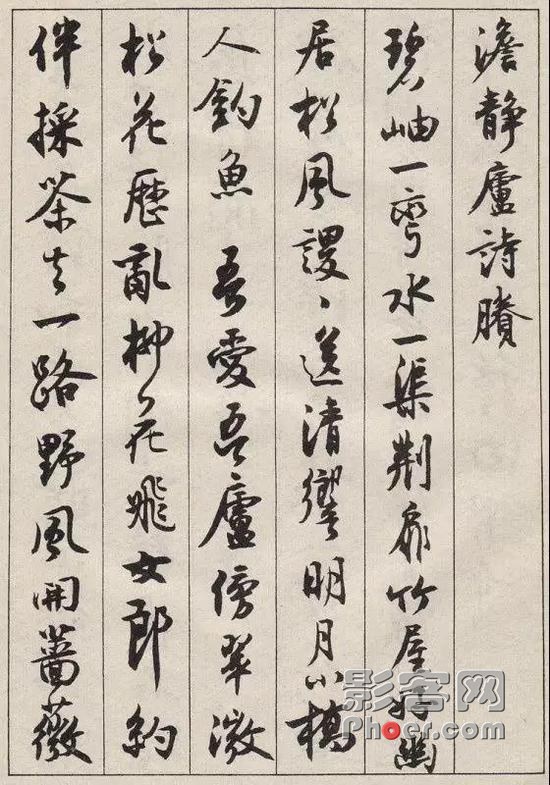 澹静廬詩賸
碧岫一彎水一渠荆扉竹屋好幽
居松風謖〻送清響明月小橋
人釣魚 吾愛吾廬傍翠微
松花歷亂柳花飛女郎約
伴採茶去一路野風開薔薇
影客网
Phoer.com